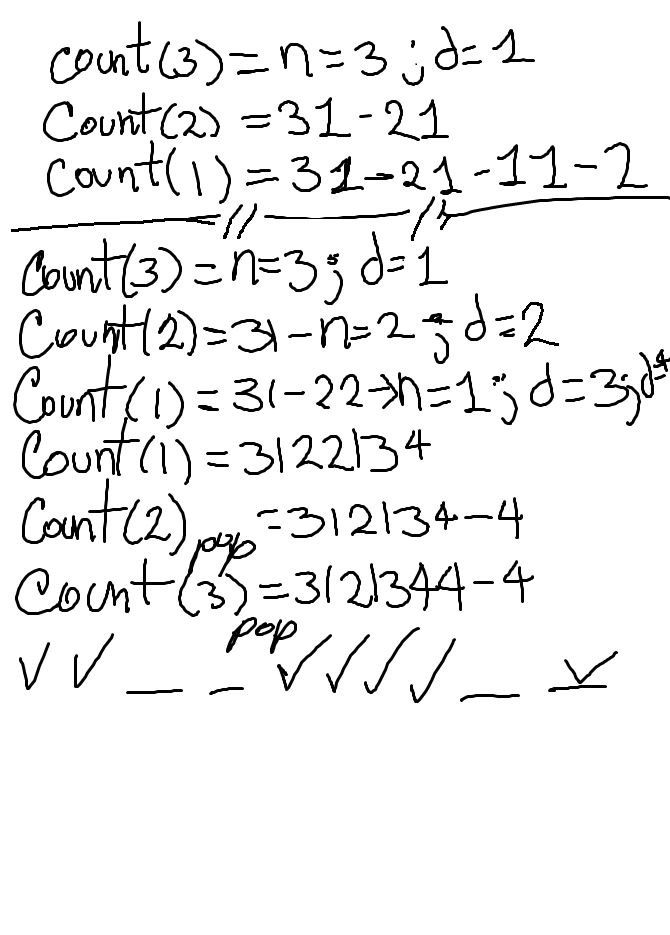 count(3) = n=3 ; d=1
Count(2) =31-21
Count(1) = 31-21-11-2
Count(3) =n=3; d=1
Count(2)=31-n=2 ; d=2
Count(1) = 31-22→n=1; d=3; d=4
Count(1) =3122134
Count(2) pop =312134-4
Count(3) pop =3121344-4